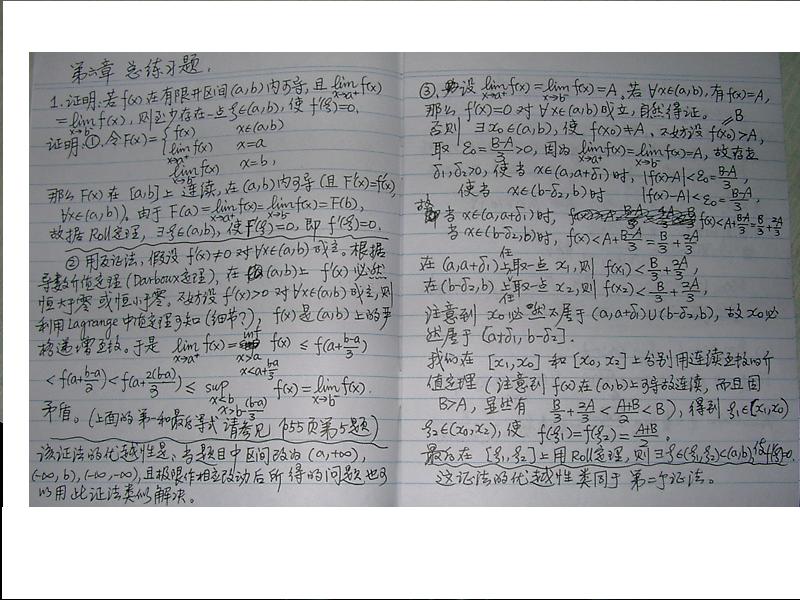 第六章 总练习题.
1. 证明: 若 f(x) 在有限开区间 (a,b) 内可导, 且 lim_{x→a⁺} f(x)
= lim_{x→b⁻} f(x), 则至少存在一点 ξ∈(a,b), 使 f'(ξ)=0.
证明: ①. 令 F(x) = { f(x) x∈(a,b)
lim_{x→a⁺} f(x) x=a
lim_{x→b⁻} f(x) x=b,
那么 F(x) 在 [a,b] 上连续, 在 (a,b) 内可导 (且 F'(x)=f'(x),
∀x∈(a,b)). 由于 F(a) = lim_{x→a⁺} f(x) = lim_{x→b⁻} f(x) = F(b),
故据 Roll定理, ∃ ξ∈(a,b), 使 F'(ξ)=0, 即 f'(ξ)=0.
② 用反证法, 假设 f'(x)≠0 对 ∀x∈(a,b) 成立. 根据
导数介值定理 (Darboux定理), 在 (a,b) 上 f'(x) 必然
恒大于零或恒小于零. 不妨设 f'(x)>0 对 ∀x∈(a,b) 成立, 则
利用 Lagrange 中值定理可知 (细节?), f(x) 是 (a,b) 上的严
格递增函数. 于是 lim_{x→a⁺} f(x) = inf_{x>a, x<a+(b-a)/3} f(x) ≤ f(a+(b-a)/3)
< f(a+(b-a)/2) < f(a+2(b-a)/3) ≤ sup_{x<b, x>b-(b-a)/3} f(x) = lim_{x→b⁻} f(x).
矛盾. (上面的第一和最后等式 请参见 P55页第5题)
该证法的优越性是: 当题目中区间改为 (a,+∞),
(-∞,b), (-∞,-∞), 且极限作相应改动后所得的问题也可
以用此证法类似解决.
③. 设 lim_{x→a⁺} f(x) = lim_{x→b⁻} f(x) = A. 若 ∀x∈(a,b), 有 f(x)=A,
那么 f'(x)=0 对 ∀x∈(a,b) 成立, 自然得证.
否则 ∃ x₀∈(a,b), 使 f(x₀)≠A. 不妨设 f(x₀) = B >A,
取 ε₀ = (B-A)/3 >0, 因为 lim_{x→a⁺} f(x) = lim_{x→b⁻} f(x) = A, 故存在
δ₁,δ₂>0, 使当 x∈(a,a+δ₁) 时, |f(x)-A|<ε₀=(B-A)/3,
使当 x∈(b-δ₂,b) 时 |f(x)-A|<ε₀=(B-A)/3,
故 当 x∈(a,a+δ₁) 时, f(x)<A+(B-A)/3=B/3+2A/3
当 x∈(b-δ₂,b) 时, f(x)<A+(B-A)/3=B/3+2A/3
在 (a,a+δ₁) 上任取一点 x₁, 则 f(x₁)<B/3+2A/3,
在 (b-δ₂,b) 上任取一点 x₂, 则 f(x₂)<B/3+2A/3,
注意到 x₀ 必然不属于 (a,a+δ₁)∪(b-δ₂,b), 故 x₀ 必
然属于 [a+δ₁,b-δ₂].
我们在 [x₁,x₀] 和 [x₀,x₂] 上分别用连续函数的介
值定理 (注意到 f(x) 在 (a,b) 上可导故连续, 而且因
B>A, 显然有 B/3+2A/3<(A+B)/2<B), 得到 ξ₁∈(x₁,x₀)
ξ₂∈(x₀,x₂), 使 f(ξ₁)=f(ξ₂)=(A+B)/2.
最后在 [ξ₁,ξ₂] 上用 Roll定理, 则 ∃ ξ∈(ξ₁,ξ₂)⊂(a,b), 使 f'(ξ)=0.
这证法的优越性类同于第二个证法.